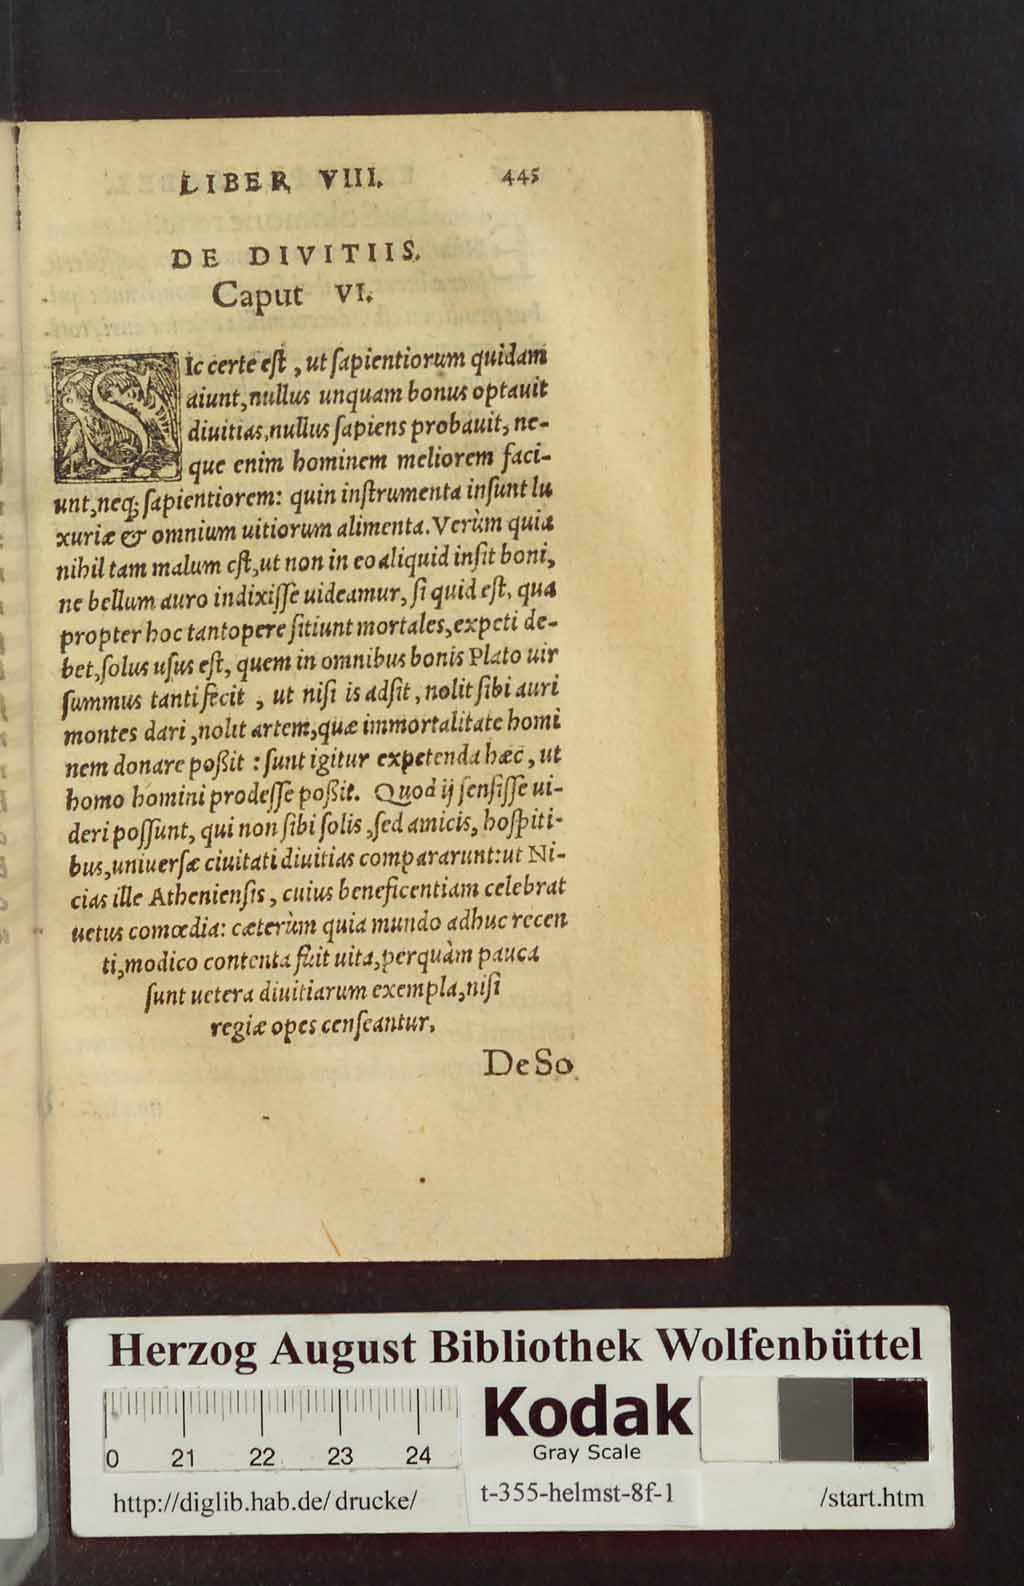 LIBER VIII. 445
DE DIVITIIS.
Caput VI.
SIc certe eſt, ut ſapientiorum quidam
aiunt, nullus unquam bonus optauit
diuitias, nullus ſapiens probauit, ne-
que enim hominem meliorem faci-
unt, neq; ſapientiorem: quin inſtrumenta inſunt lu
xuriæ & omnium uitiorum alimenta. Verùm quia
nihil tam malum eſt, ut non in eo aliquid inſit boni,
ne bellum auro indixiſſe uideamur, ſi quid eſt, qua
propter hoc tantopere ſitiunt mortales, expeti de-
bet, ſolus uſus eſt, quem in omnibus bonis Plato uir
ſummus tanti fecit, ut niſi is adſit, nolit ſibi auri
montes dari, nolit artem, quæ immortalitate homi
nem donare poßit: ſunt igitur expetenda hæc, ut
homo homini prodeſſe poßit. Quod ij ſenſiſſe ui-
deri poſſunt, qui non ſibi ſolis, ſed amicis, hoſpiti-
bus, uniuerſæ ciuitati diuitias compararunt: ut Ni-
cias ille Athenienſis, cuius beneficentiam celebrat
uetus comœdia: cæterùm quia mundo adhuc recen
ti, modico contenta fuit uita, perquàm pauca
ſunt uetera diuitiarum exempla, niſi
regiæ opes cenſeantur.
De So
Herzog August Bibliothek Wolfenbüttel
Kodak
Gray Scale
0 21 22 23 24
http://diglib.hab.de/drucke/ t-355-helmst-8f-1 /start.htm